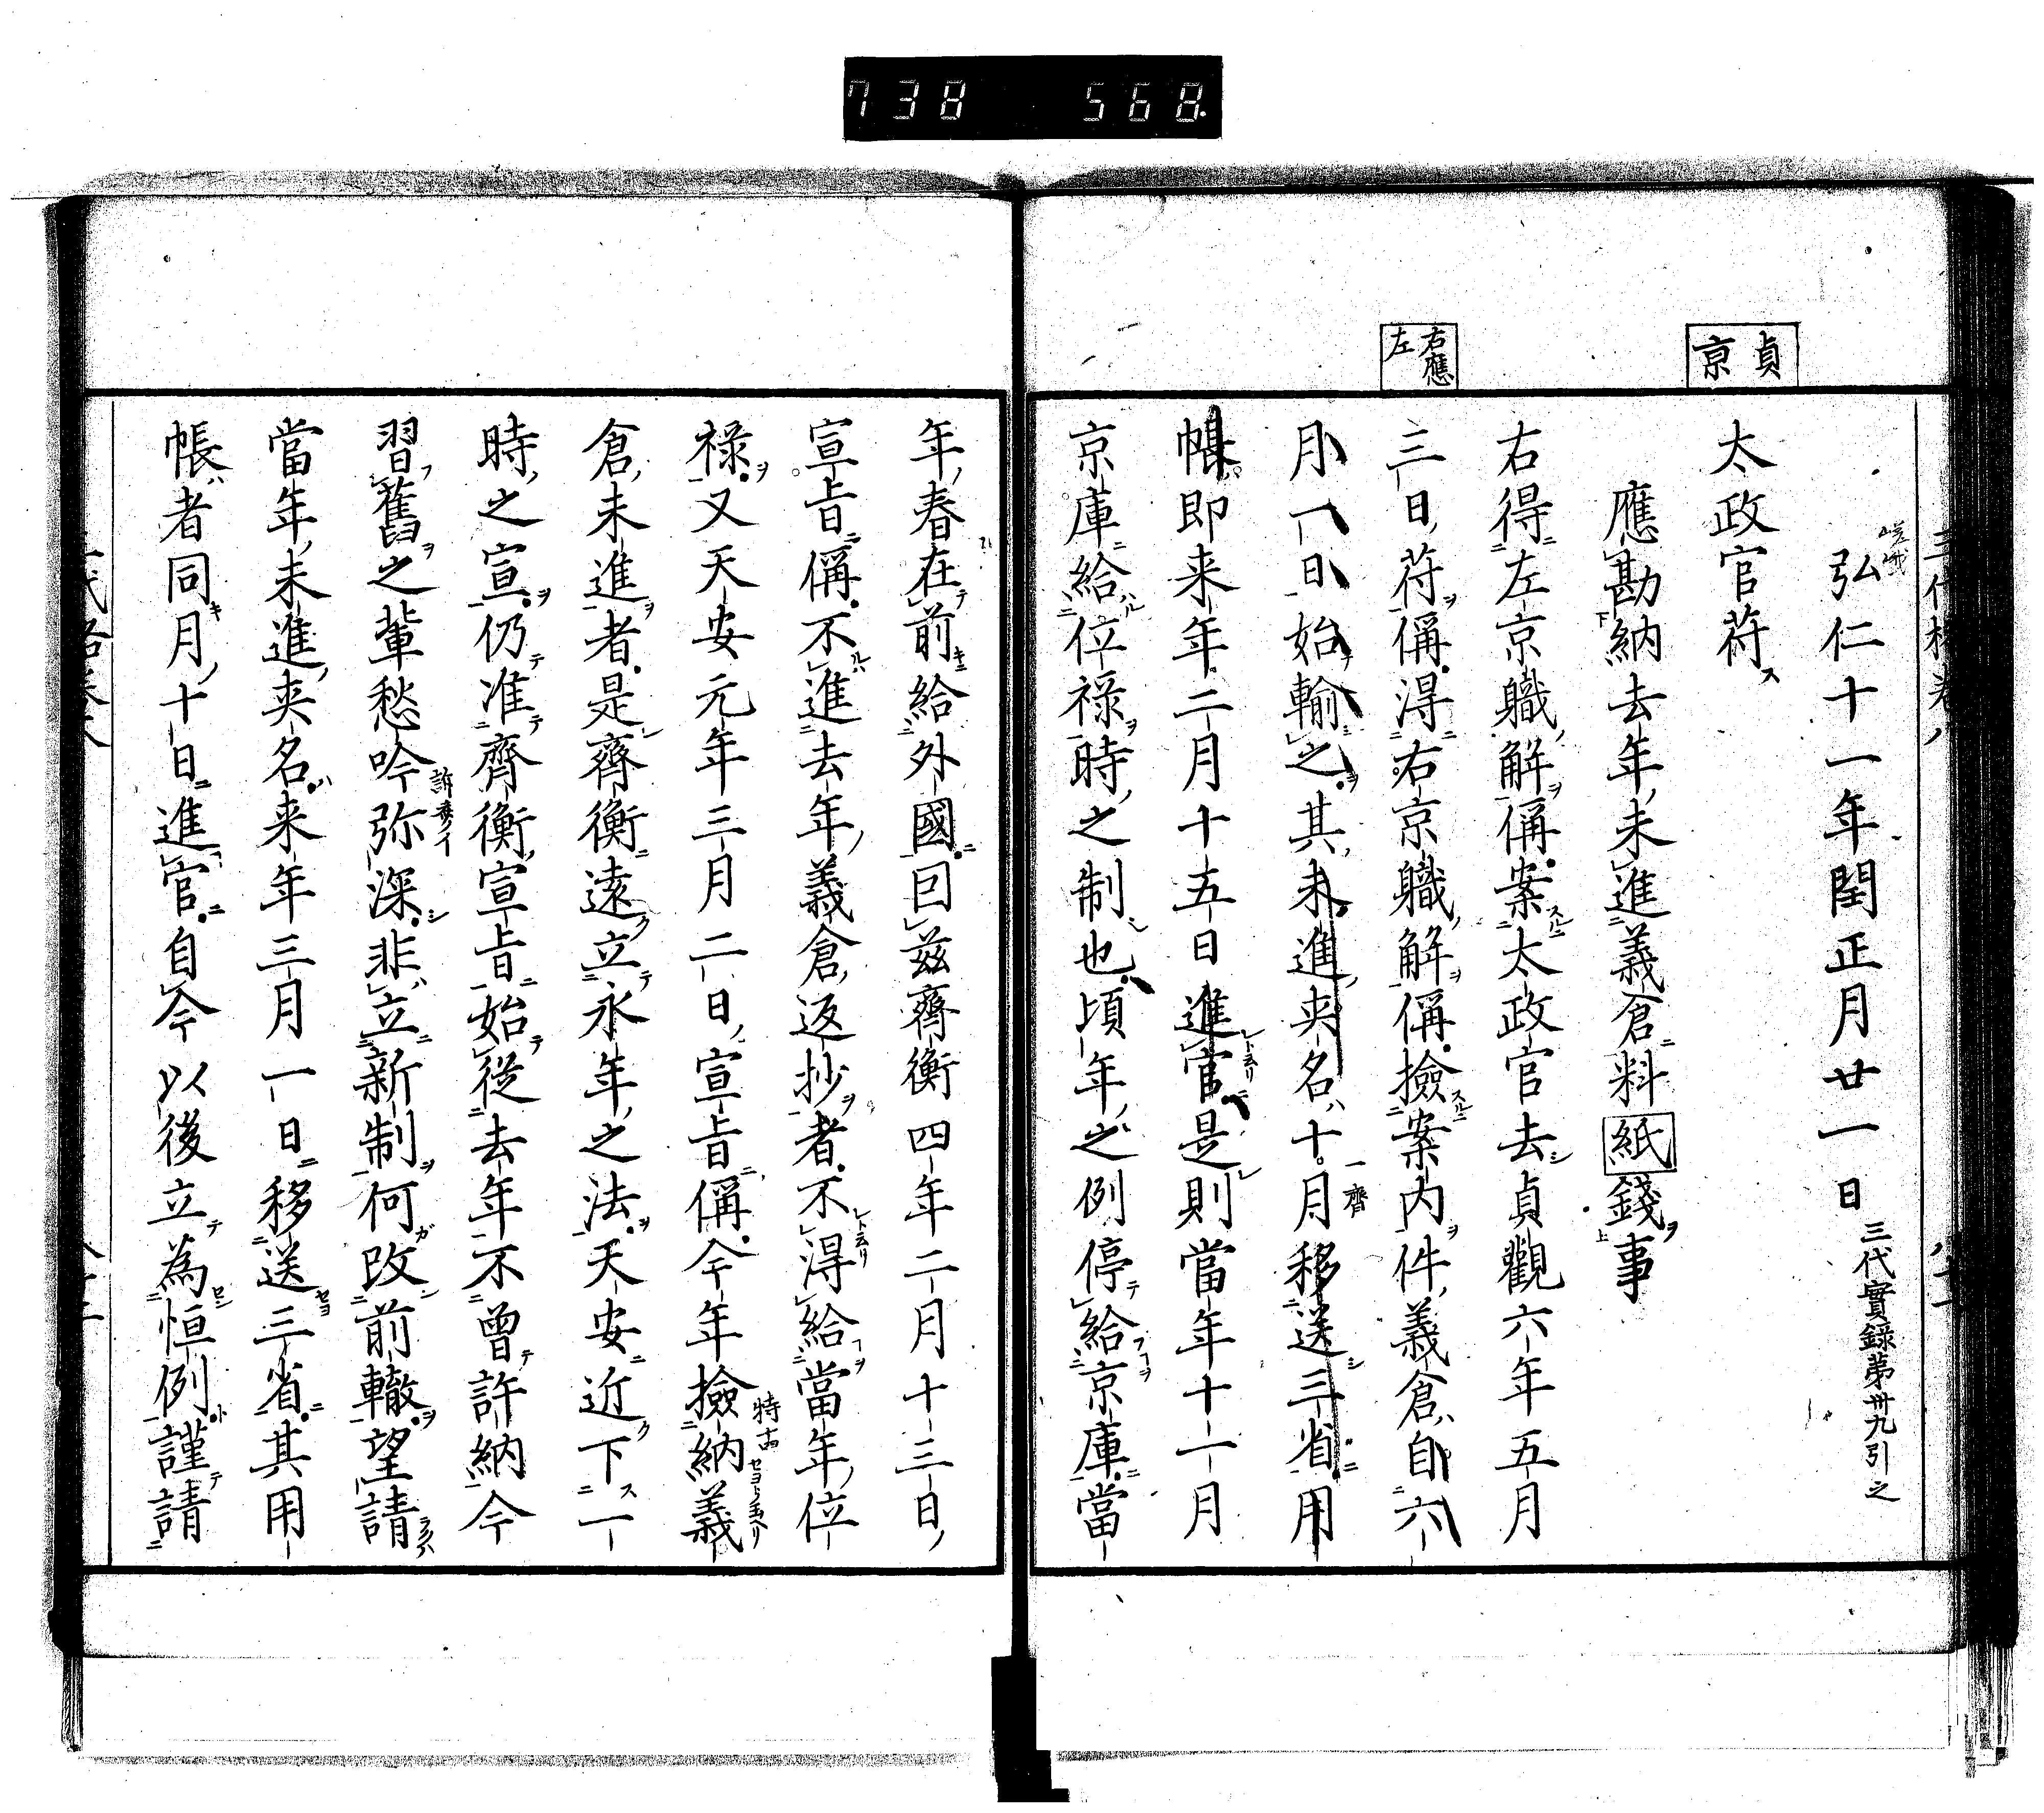 738 568
弘仁十一年閏正月廿一日 三代實録第卅九引之
嵯峨
貞京
太政官苻
應勘納去年未進義倉料紙錢事
右得左京職解偁案太政官去貞觀六年五月
右應左
三日苻偁得右京職解偁撿案内件義倉自六
月一日始輸之其未進夾名十月移送三省用
一齊
帳即来年二月十五日進官是則當年十一月
京庫給位禄時之制也頃年之例停給京庫當
年春在前給外國曰茲齊衡四年二月十三日
宣旨偁不進去年義倉返抄者不得給當年位
禄又天安元年三月二日宣旨偁今年撿納義
特
倉未進者是齊衡遠立永年之法天安近下一
時之宣仍准齊衡宣旨始從去年不曾許納今
習舊之輩愁吟弥深非立新制何改前轍望請
當年未進夾名来年三月一日移送三省其用
帳者同月十日進官自今以後立為恒例謹請